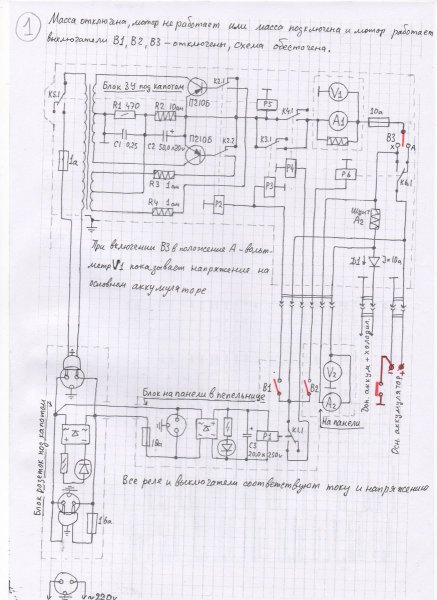 1
Масса отключена, мотор не работает или масса подключена и мотор работает
выключатели В1, В2, В3 - отключены, схема обесточена.
Блок ЗУ под капотом
К2.1
К5.1
П210Б
R1 470
R2 10ом
P5
К4.1
V1
A1
10а
В3
X
A
C1 0,25
C2 50,0×20v
П210Б
К2.2
К3.1
P4
P6
К6.1
1а
R3 1ом
R4 1ом
P3
P2
Шунт
A2
При включении В3 в положение А - вольт-
метр V1 показывает напряжение на
основном аккумуляторе
Д1
Доп. аккум + холодил.
Осн. аккумулятор
Блок розеток под капотом
Блок на панели в пепельнице
В1
В2
V2
A2
На панели
10а
C3
20,0×250v
P1
К1.1
Все реле и выключатели соответствуют току и напряжению
16а
~220v